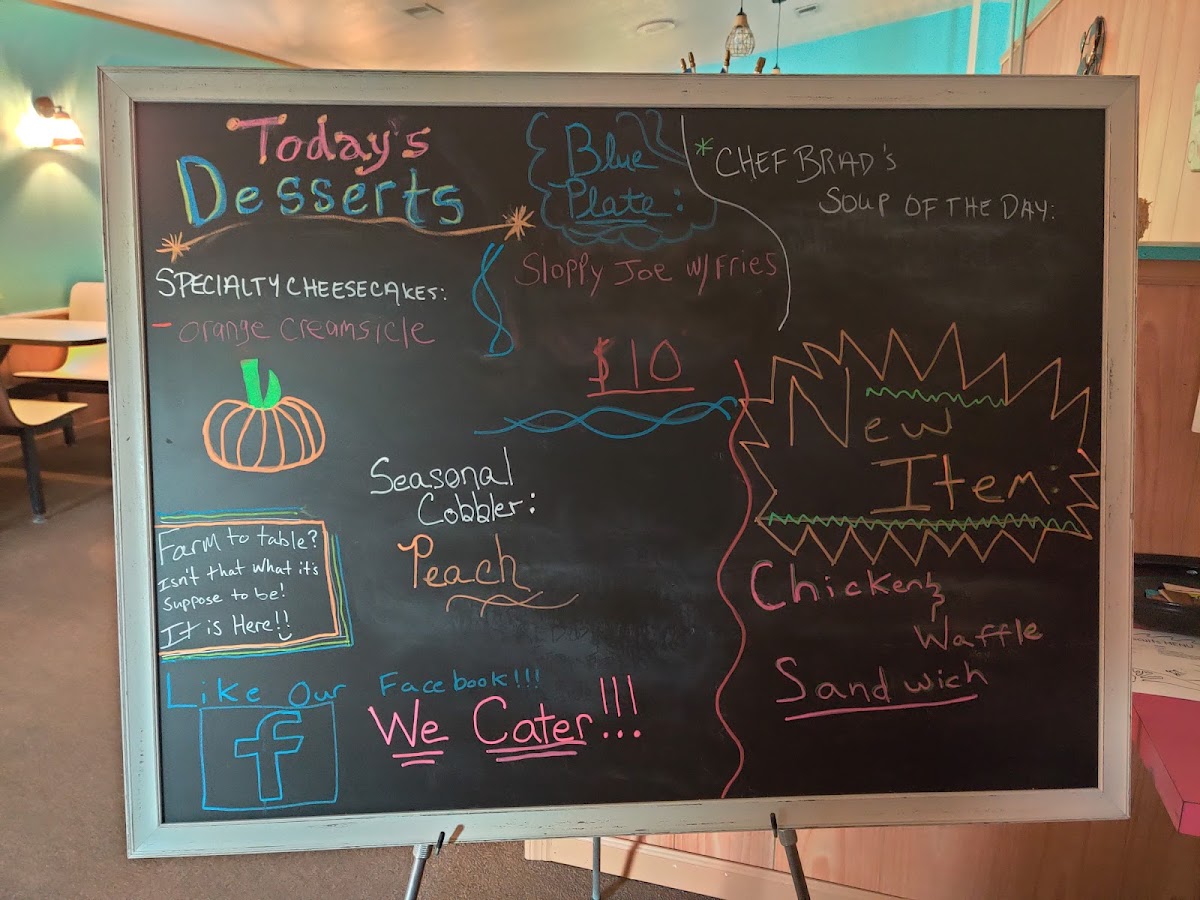 Today's
Desserts
SPECIALTY CHEESECAKES:
- orange creamsicle
Blue
Plate:
Sloppy Joe w/ Fries
$10
* CHEF BRAD'S
SOUP OF THE DAY:
Seasonal
Cobbler:
Peach
New
Item:
Chicken &
Waffle
Sandwich
Farm to table?
Isn't that what it's
suppose to be!
It is Here!!
Like Our Facebook!!!
f
We Cater!!!